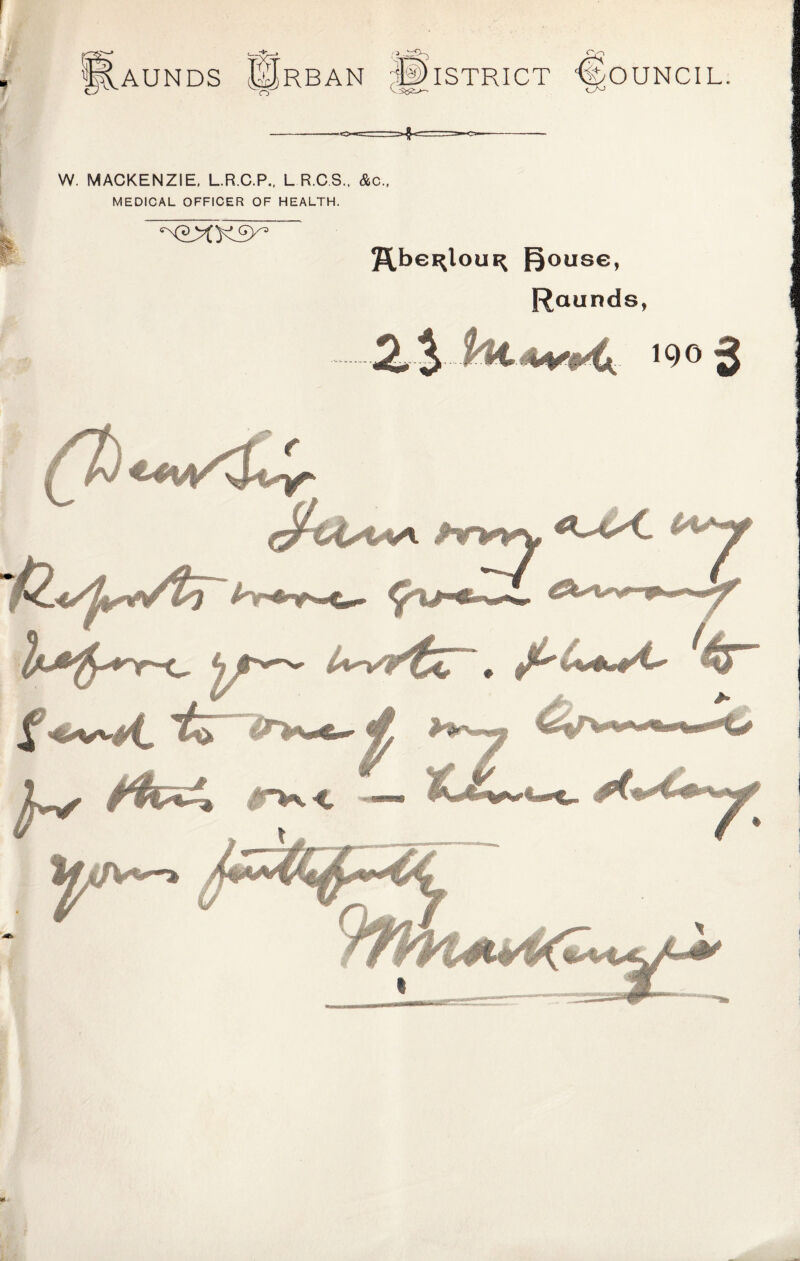 RAUNDS URBAN DISTRICT COUNCIL.
W. MACKENZIE, L.R.C.P., L.R.C.S., &c.,
MEDICAL OFFICER OF HEALTH.
Aberlour House,
Raunds,
23 March 1903
Dear Sir
I am sorry all my
Reports were given away
before you wrote. I had to
send to one of my Council
for this one — hence delay.
yours faithfully
W Mackenzie